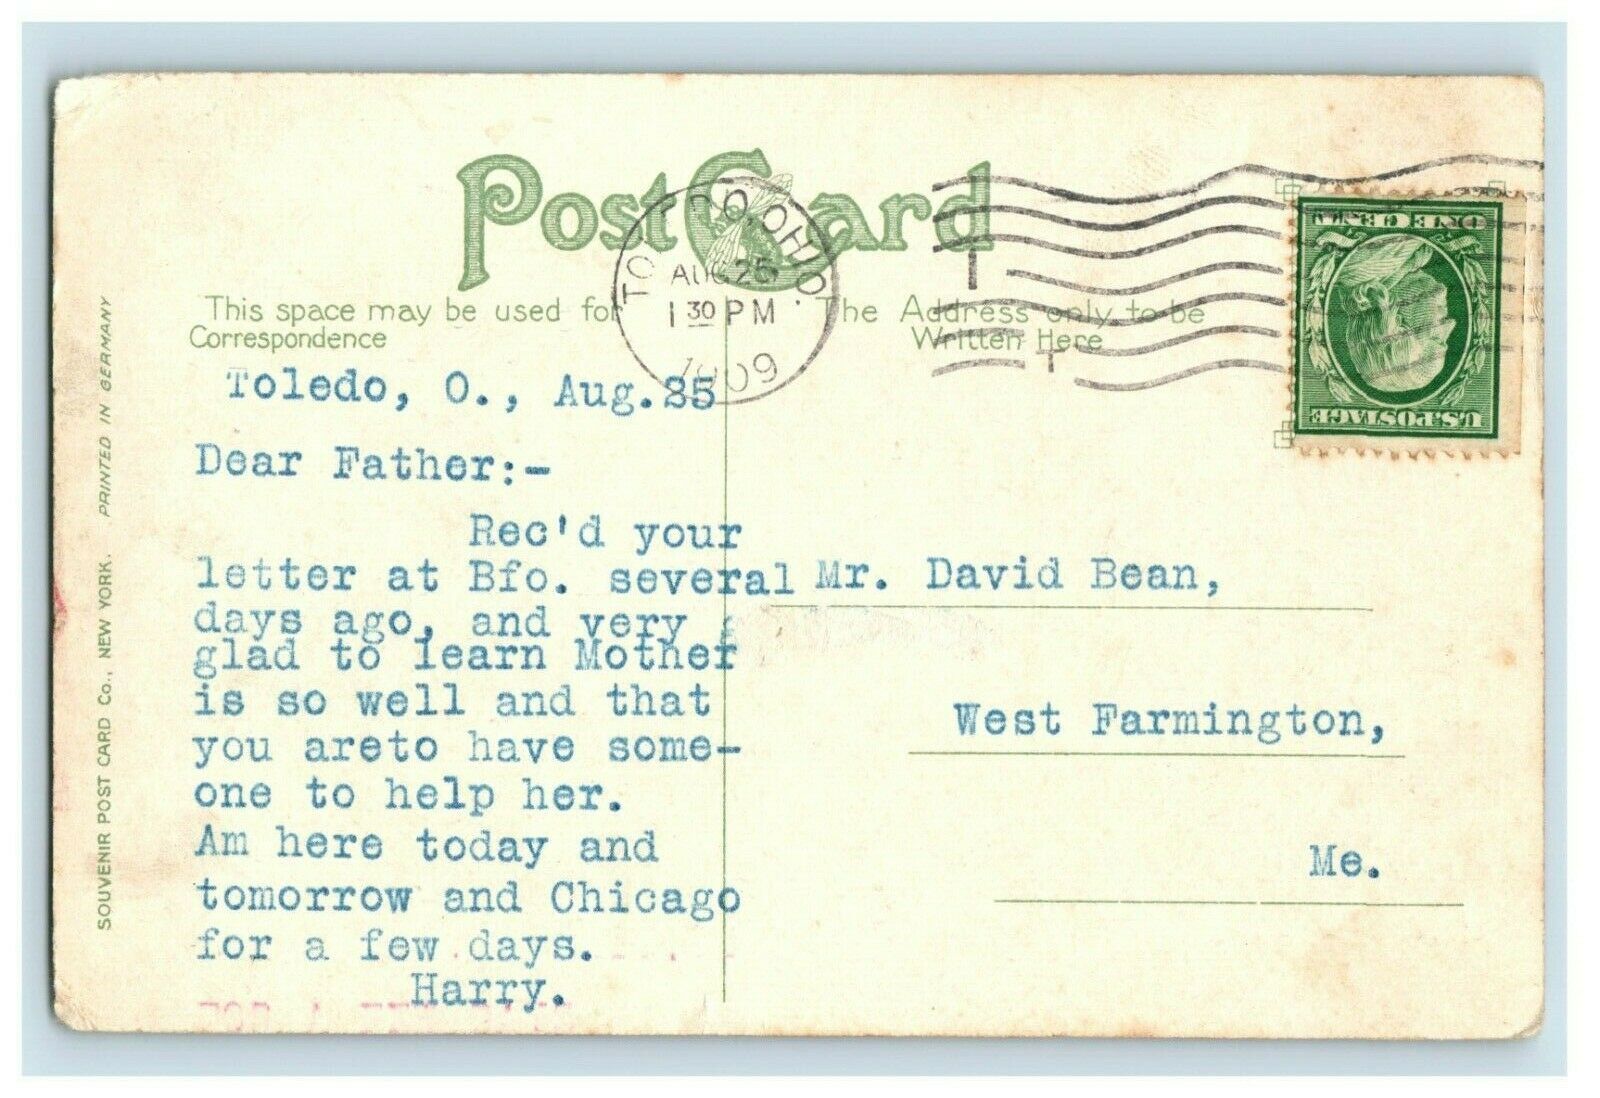 Post Card
TOLEDO, OHIO.
AUG 25
1 30 PM
1909
ONE CENT
U.S. POSTAGE
This space may be used for
Correspondence
The Address only to be
Written Here
Toledo, O., Aug.25
Dear Father:-
Rec'd your
letter at Bfo. several
days ago, and very
glad to learn Mother
is so well and that
you areto have some-
one to help her.
Am here today and
tomorrow and Chicago
for a few days.
Harry.
Mr. David Bean,
West Farmington,
Me.
SOUVENIR POST CARD Co., NEW YORK. PRINTED IN GERMANY